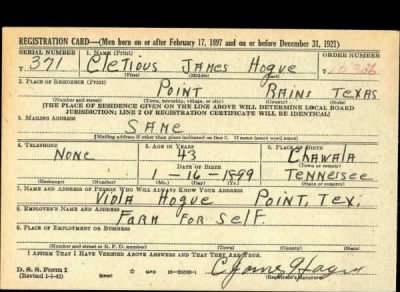 REGISTRATION CARD—(Men born on or after February 17, 1897 and on or before December 31, 1921)
SERIAL NUMBER 1. NAME (Print) ORDER NUMBER
T 371 Cletious James Hogue T 10326
(First) (Middle) (Last)
2. PLACE OF RESIDENCE (Print)
Point Rains Texas
(Number and street) (Town, township, village, or city) (County) (State)
[THE PLACE OF RESIDENCE GIVEN ON THE LINE ABOVE WILL DETERMINE LOCAL BOARD
JURISDICTION; LINE 2 OF REGISTRATION CERTIFICATE WILL BE IDENTICAL]
3. MAILING ADDRESS
SAME
[Mailing address if other than place indicated on line 2. If same insert word same]
4. TELEPHONE 5. AGE IN YEARS 6. PLACE OF BIRTH
None 43 Chawala
DATE OF BIRTH (Town or county)
1-16-1899 Tennessee
(Exchange) (Number) (Mo.) (Day) (Yr.) (State or country)
7. NAME AND ADDRESS OF PERSON WHO WILL ALWAYS KNOW YOUR ADDRESS
Viola Hogue Point, Tex.
8. EMPLOYER'S NAME AND ADDRESS
Farm for Self.
9. PLACE OF EMPLOYMENT OR BUSINESS
(Number and street or R. F. D. number) (Town) (County) (State)
I AFFIRM THAT I HAVE VERIFIED ABOVE ANSWERS AND THAT THEY ARE TRUE.
D. S. S. Form 1
(Revised 1-1-42) GPO C James Hogue
(Registrant's signature)